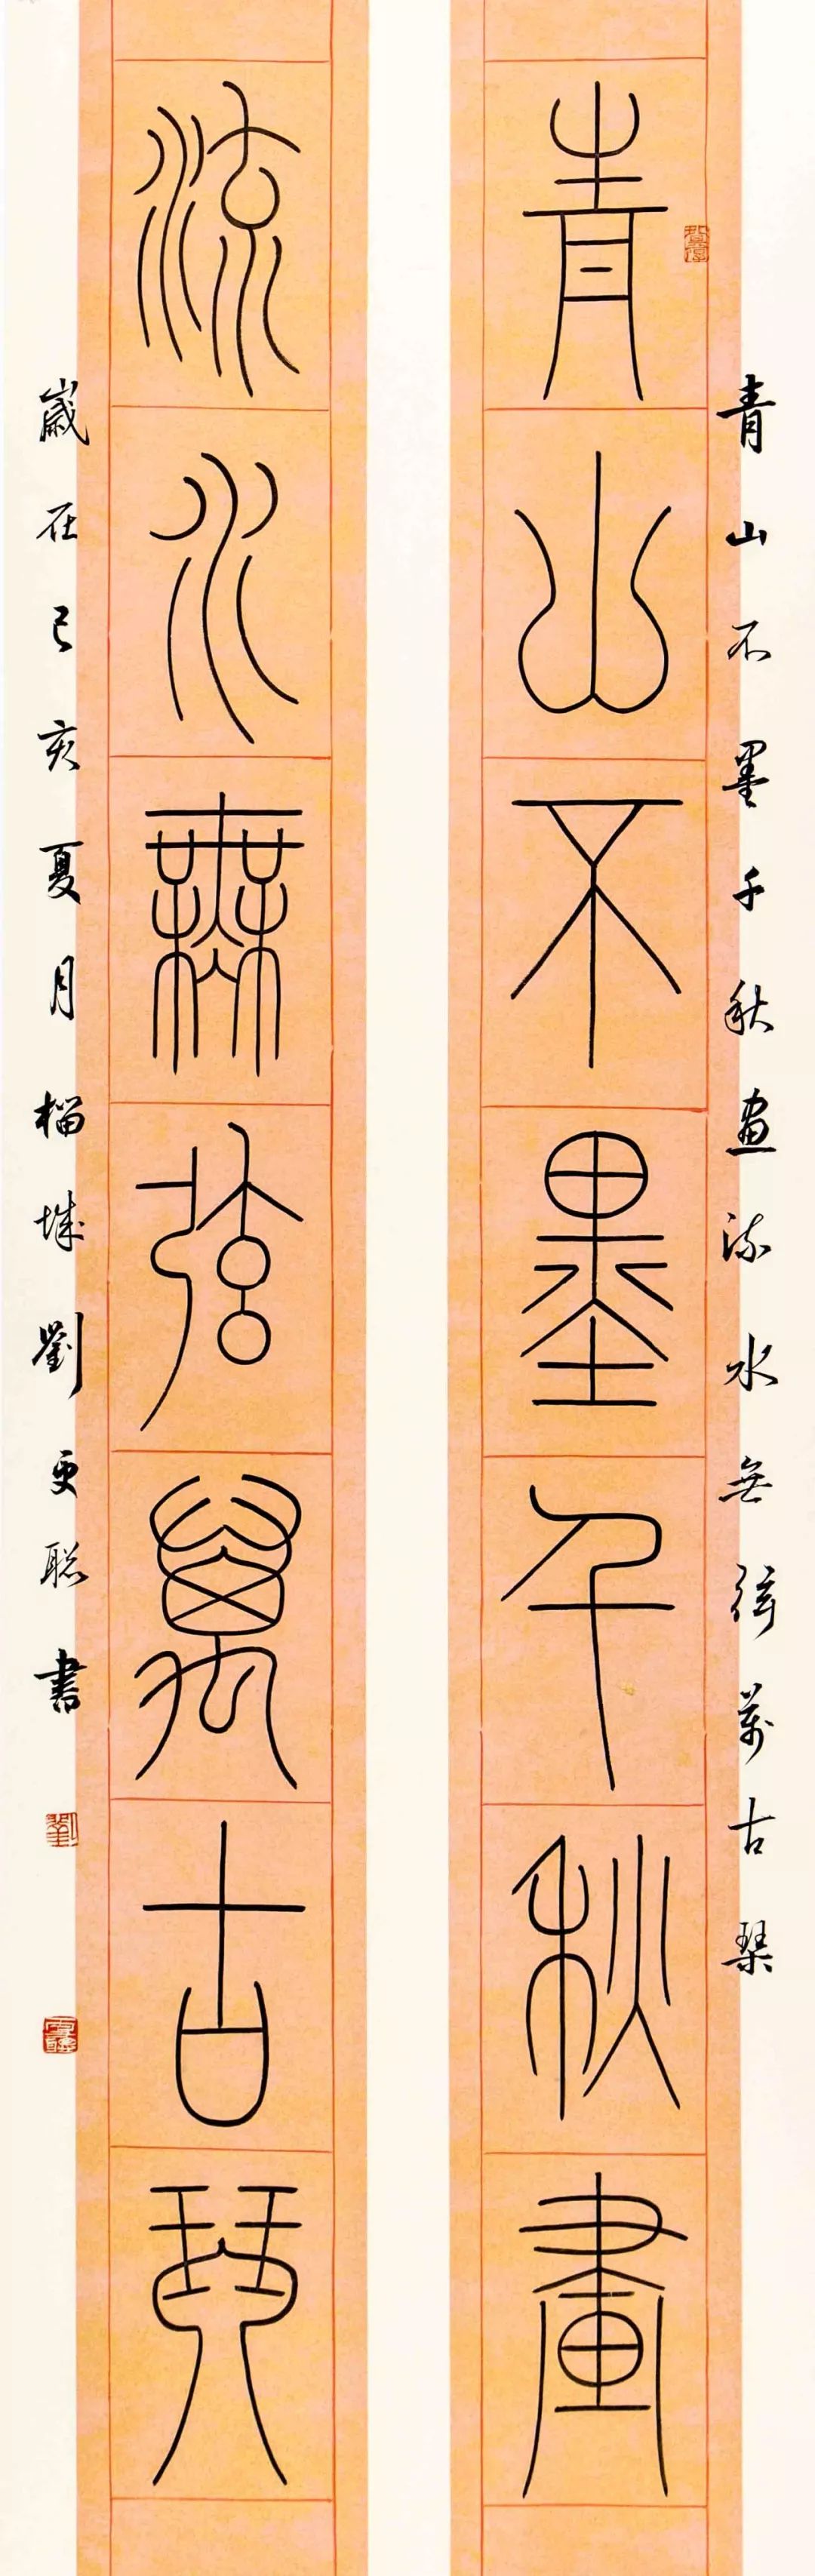 青山不墨千秋畫流水無弦萬古琴
青山不墨千秋畫
流水無弦萬古琴
歲在己亥夏月榴城劉更聪書